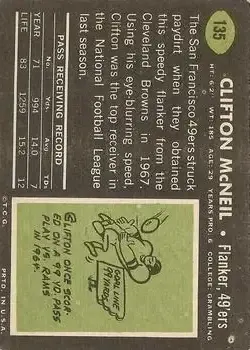 135
CLIFTON McNEIL • Flanker, 49'ers
HT: 6'2" WT: 185 AGE: 29 YEARS PRO: 6 COLLEGE: GRAMBLING
The San Francisco 49ers struck
paydirt when they obtained
this speedy flanker from the
Cleveland Browns in 1967.
Using his eye-blurring speed,
Clifton was the top receiver in
the National Football League
last season.
PASS RECEIVING RECORD
No. Yds. Avg. TD's
YEAR 71 994 14.0 7
LIFE 83 1259 15.2 12
GOAL LINE
99 YARDS
CLIFTON ONCE SCOR-
ED ON A 99 YD. PASS
PLAY VS. RAMS
IN 1964.
© T.C.G. PRTD. IN U.S.A.